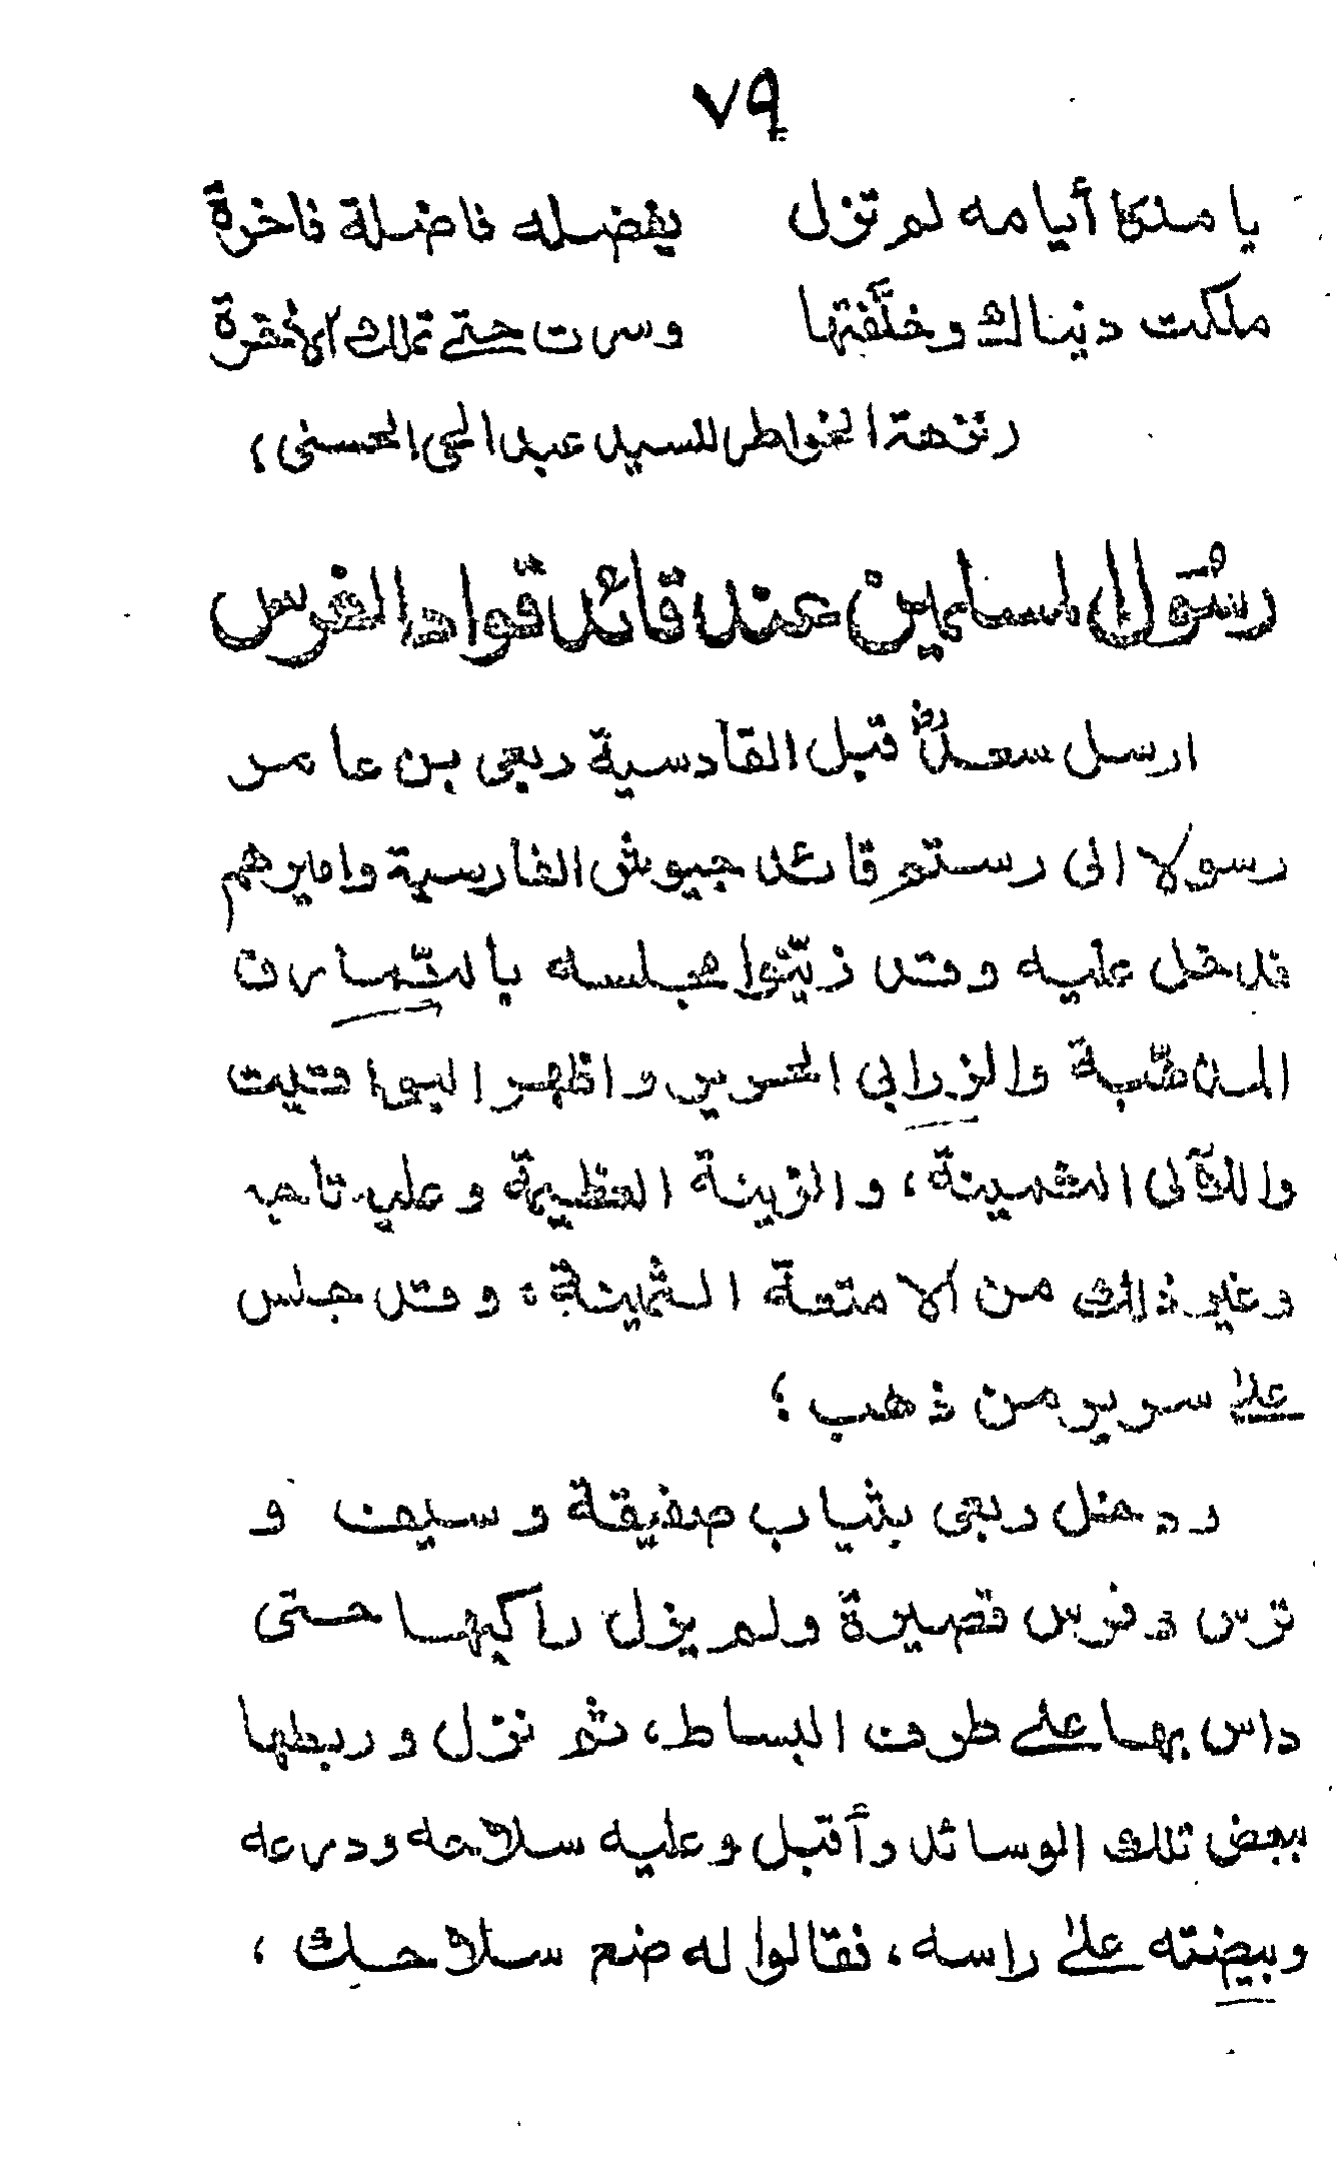 ٧٩
يا ملكا أيامه لم تزل    يفضله فاضلة فاخرة
ملكت دنياك وخلّفتها    وسرت حتى تملك الأخرة
(نزهة الخواطر للسيد عبد الحي الحسني)
رسُول المسلمين عند قائد قواد الفرس
ارسل سعدؓ قبل القادسية ربعى بن عامر
رسولا الى رستم قائد جيوش الفارسية واميرهم
فدخل عليه وقد زيّنوا مجلسه بالنّمارق
المذهّبة والزرابي الحرير واظهر اليواقيت
واللآلى الثمينة، والزينة العظيمة وعليه تاجه
وغير ذلك من الامتعة الثمينة، وقد جلس
على سرير من ذهب؛
ودخل ربعى بثياب صفيقة وسيف و
ترس وفرس قصيرة ولم يزل راكبها حتى
داس بها على طرف البساط، ثم نزل وربطها
ببعض تلك الوسائد وأقبل وعليه سلاحه ودرعه
وبيضته على راسه، فقالوا له ضع سلاحك،